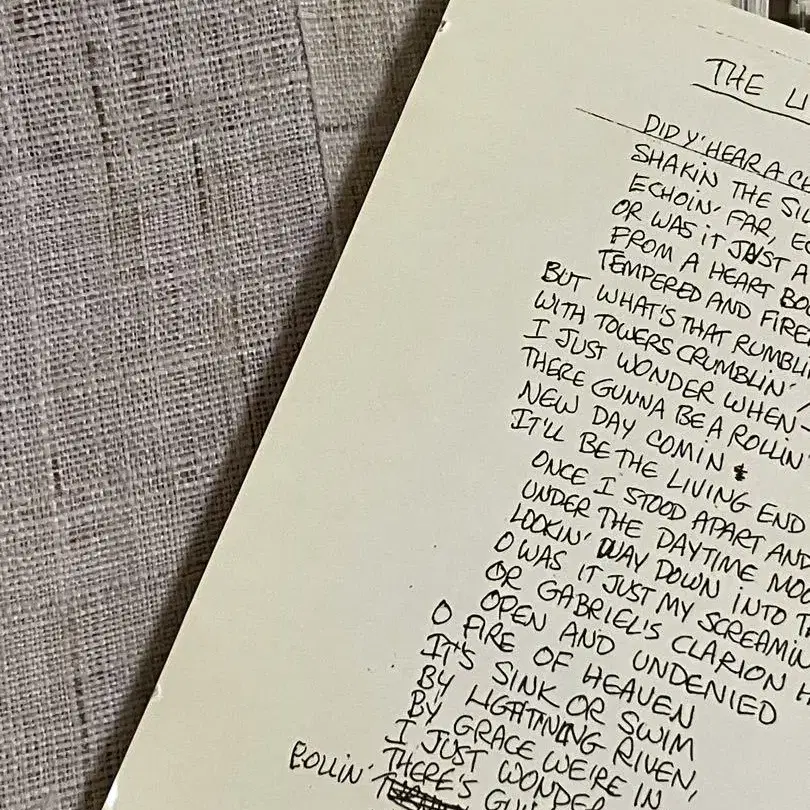 THE LI
DID Y' HEAR A CE
SHAKIN THE SIL
ECHOIN' FAR, EC
OR WAS IT JUST A
FROM A HEART BO
TEMPERED AND FIRE
BUT WHAT'S THAT RUMBLI
WITH TOWERS CRUMBLIN'
I JUST WONDER WHEN-
THERE GUNNA BE A ROLLIN'
NEW DAY COMIN
IT'LL BE THE LIVING END
ONCE I STOOD APART AND
UNDER THE DAYTIME MOO
LOOKIN' WAY DOWN INTO T
O WAS IT JUST MY SCREAMIN
OR GABRIEL'S CLARION H
OPEN AND UNDENIED
O FIRE OF HEAVEN
IT'S SINK OR SWIM
BY LIGHTNING RIVEN,
BY GRACE WE'RE IN
I JUST WONDER
THERE'S GU
ROLLIN'